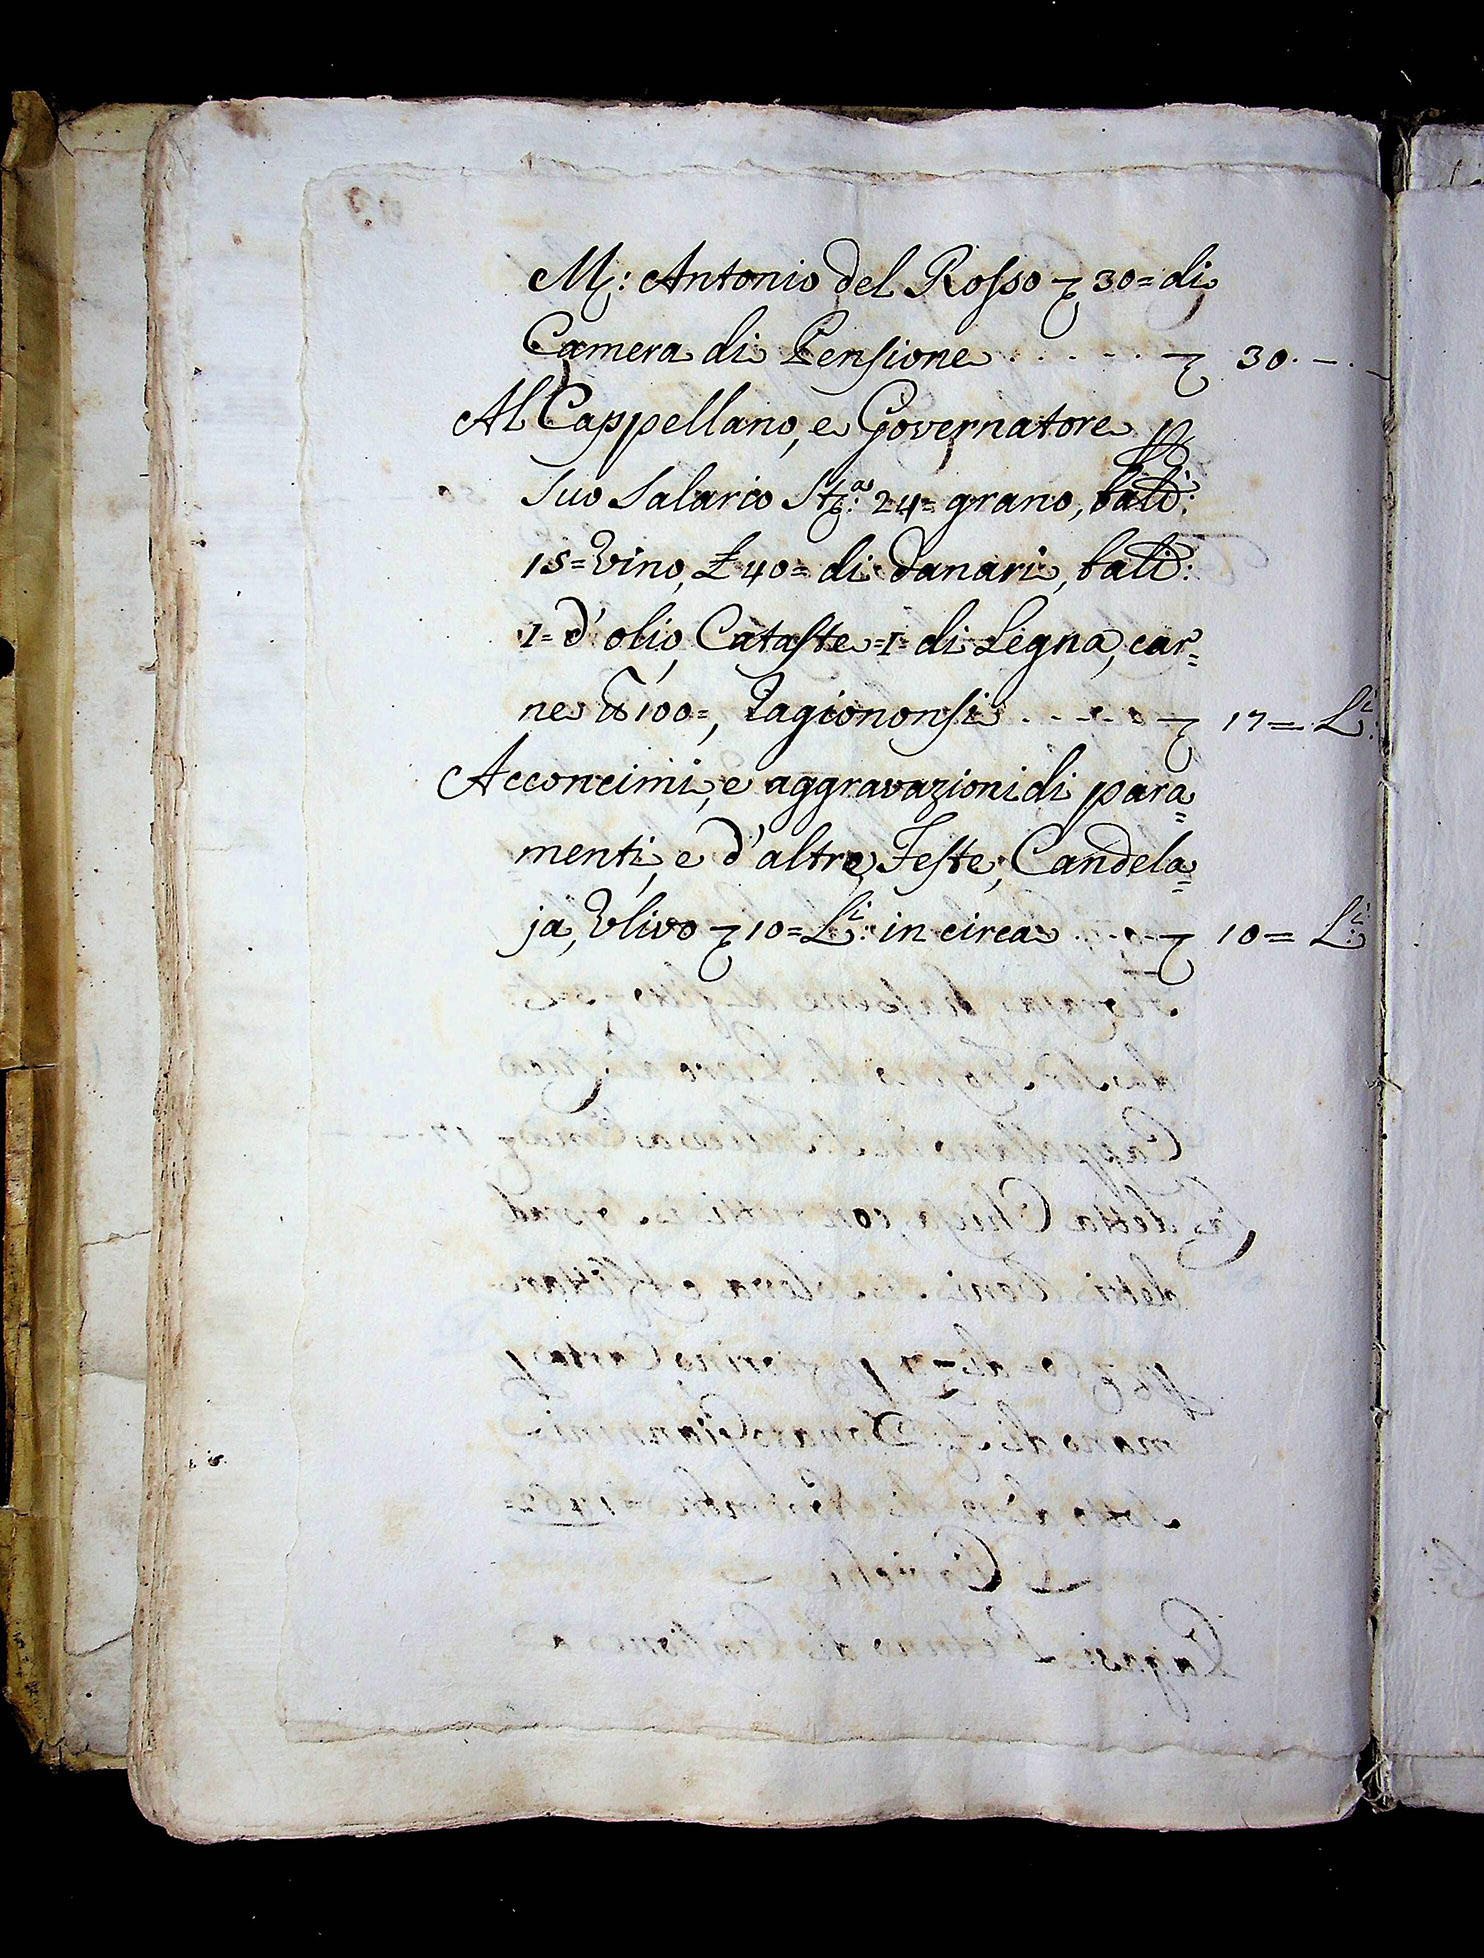 M: Antonio del Rosso ▽ 30= di
Camera di Pensione . . . . . ▽ 30. —. —
Al Cappellano, e Governatore p
suo salario St:ª 24= grano, bali:
15= Vino, £ 40= di danari, bali:
1= d'olio, Cataste =1= di Legna, car=
ne ℔ 100=, Pagiononsi . . . . . ▽ 17= L:i
Acconcimi, e aggravazioni di para=
menti, e d'altre Feste, Candela=
ja, Ulivo ▽ 10= L:i in circa . . . ▽ 10= L:i